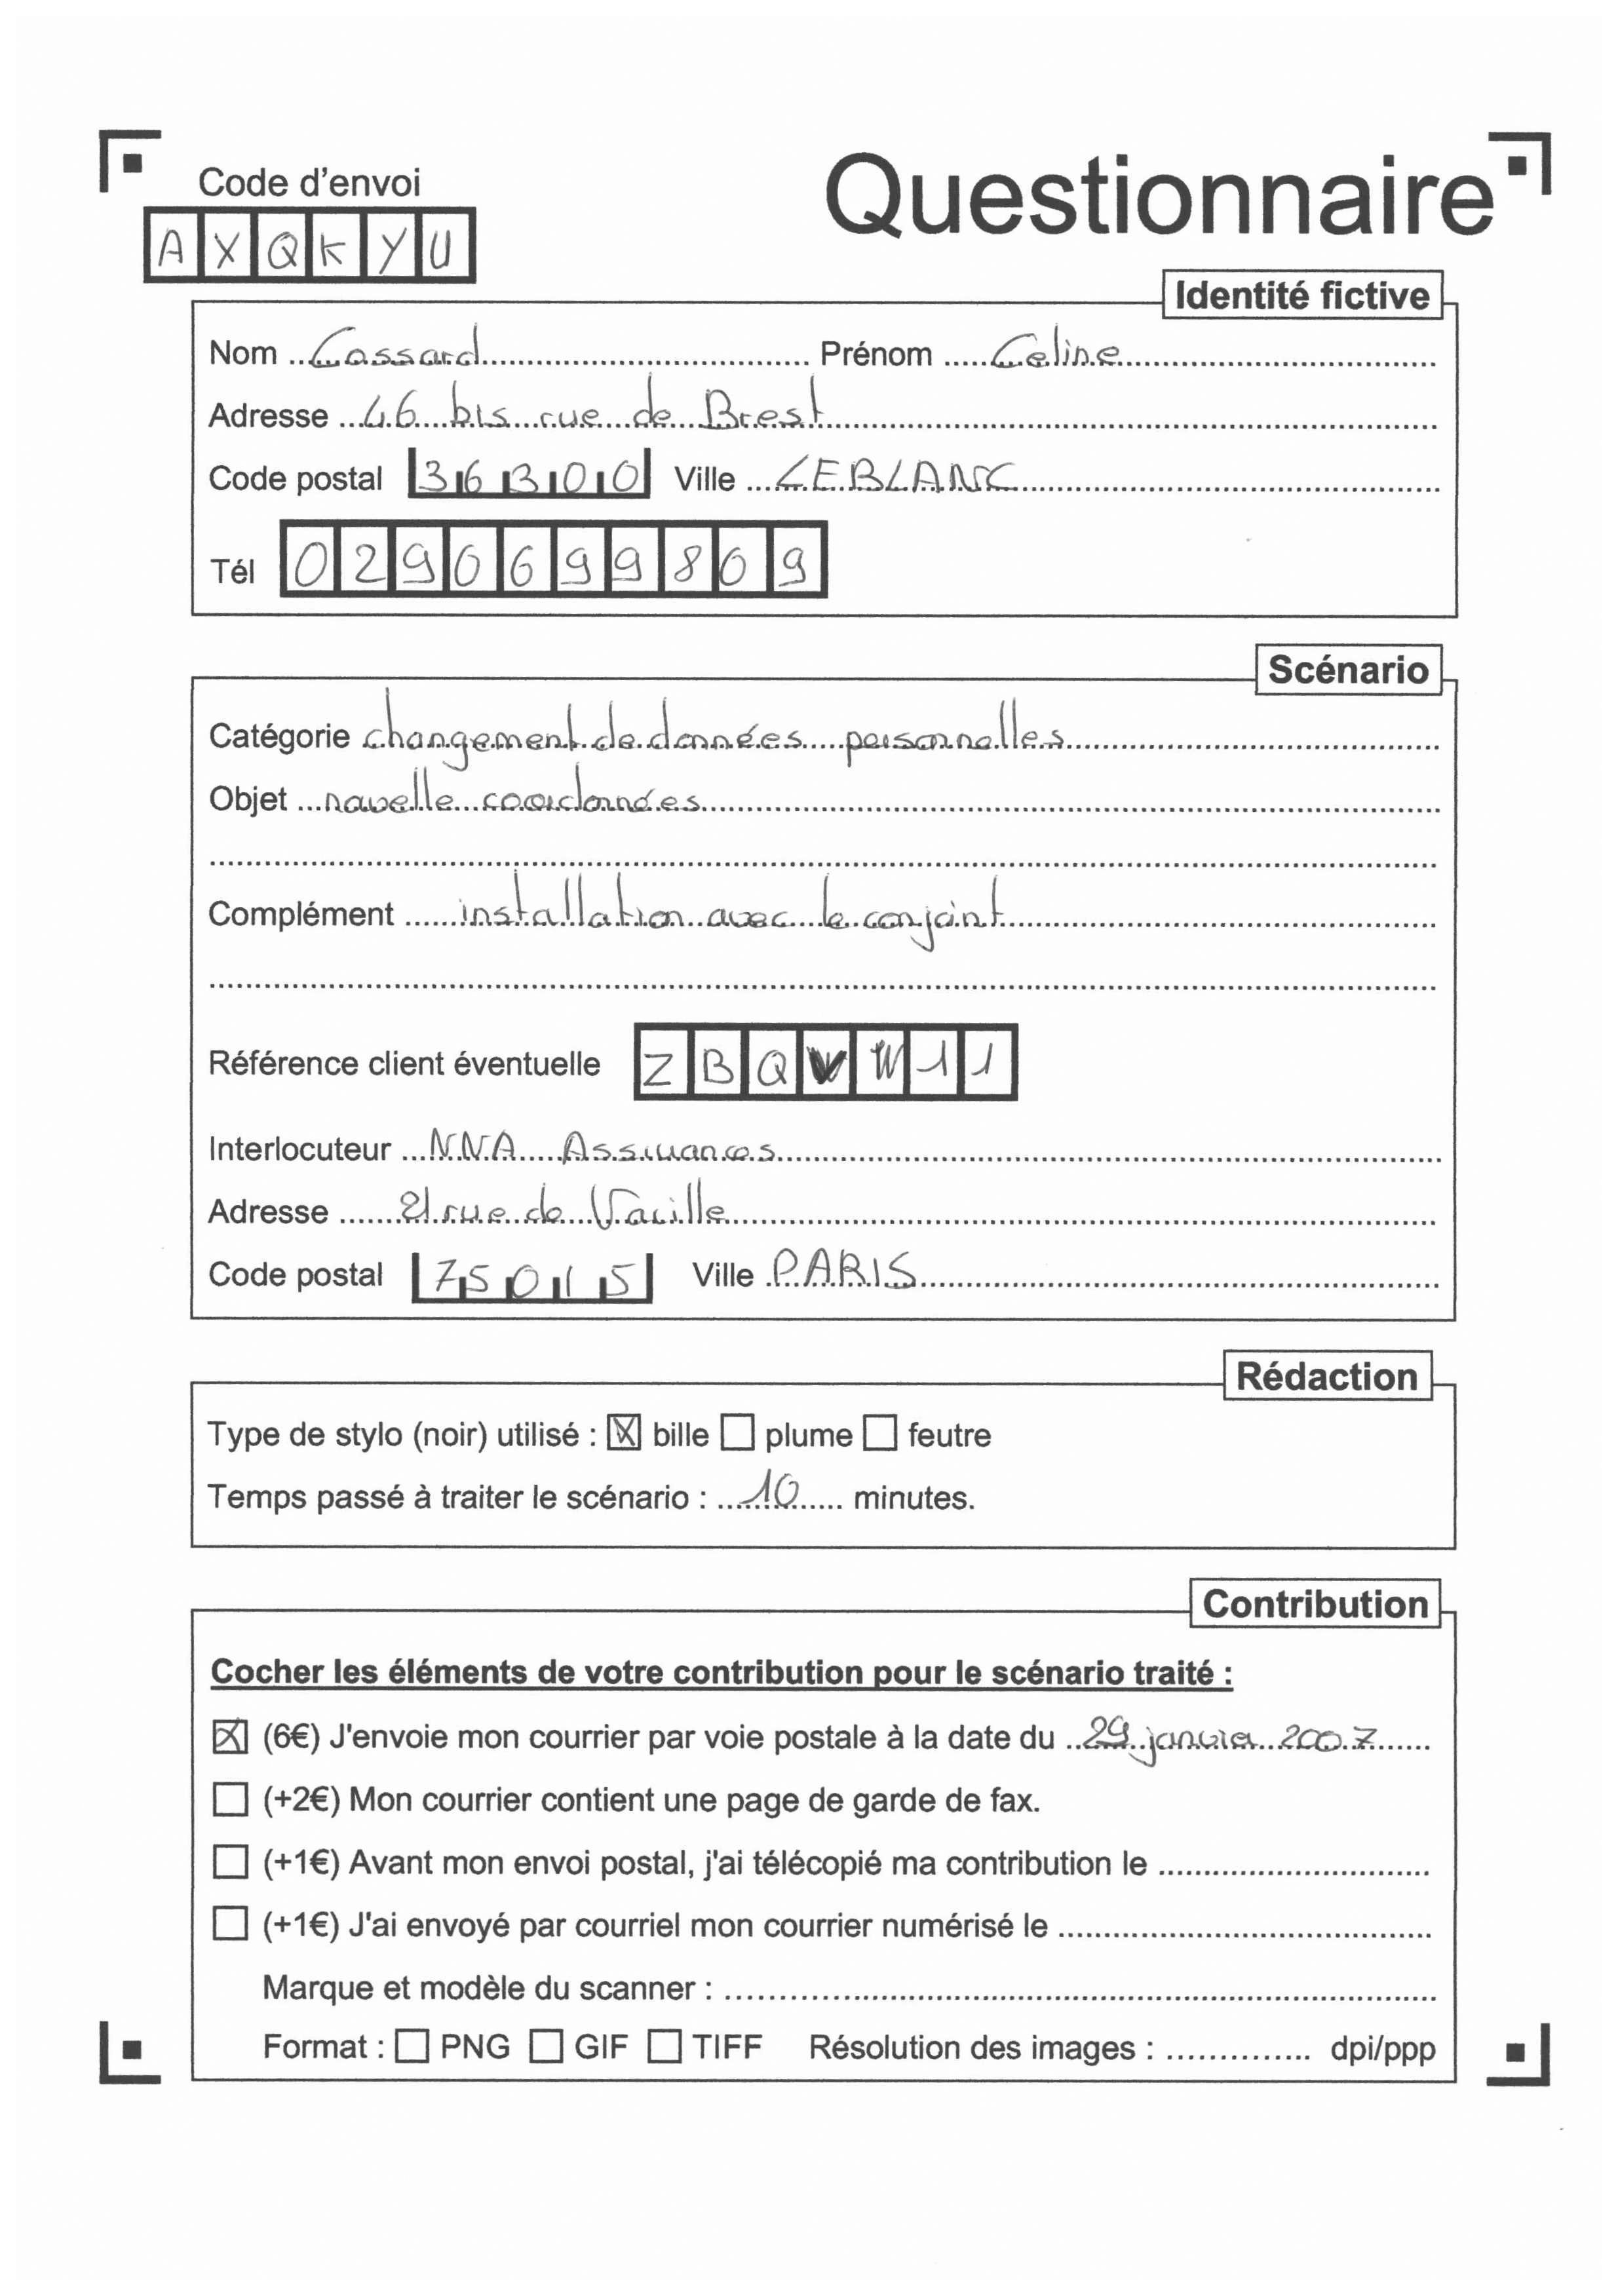 Code d'envoi
Questionnaire
A X Q K Y U
Identité fictive
Nom Cassard Prénom Celine
Adresse 46 bis rue de Brest
Code postal 36300 Ville LEBLANC
Tél 0290699809
Scénario
Catégorie changement de données personnelles
Objet nouvelle coordonnées
Complément installation avec le conjoint
Référence client éventuelle Z B Q V W 1 1
Interlocuteur NNA Assurances
Adresse 21 rue de
Code postal 75015 Ville PARIS
Rédaction
Type de stylo (noir) utilisé : ☒ bille ☐ plume ☐ feutre
Temps passé à traiter le scénario : 10 minutes.
Contribution
Cocher les éléments de votre contribution pour le scénario traité :
☒ (6€) J'envoie mon courrier par voie postale à la date du 29 janvier 2007
☐ (+2€) Mon courrier contient une page de garde de fax.
☐ (+1€) Avant mon envoi postal, j'ai télécopié ma contribution le
☐ (+1€) J'ai envoyé par courriel mon courrier numérisé le
Marque et modèle du scanner :
Format : ☐ PNG ☐ GIF ☐ TIFF Résolution des images : dpi/ppp